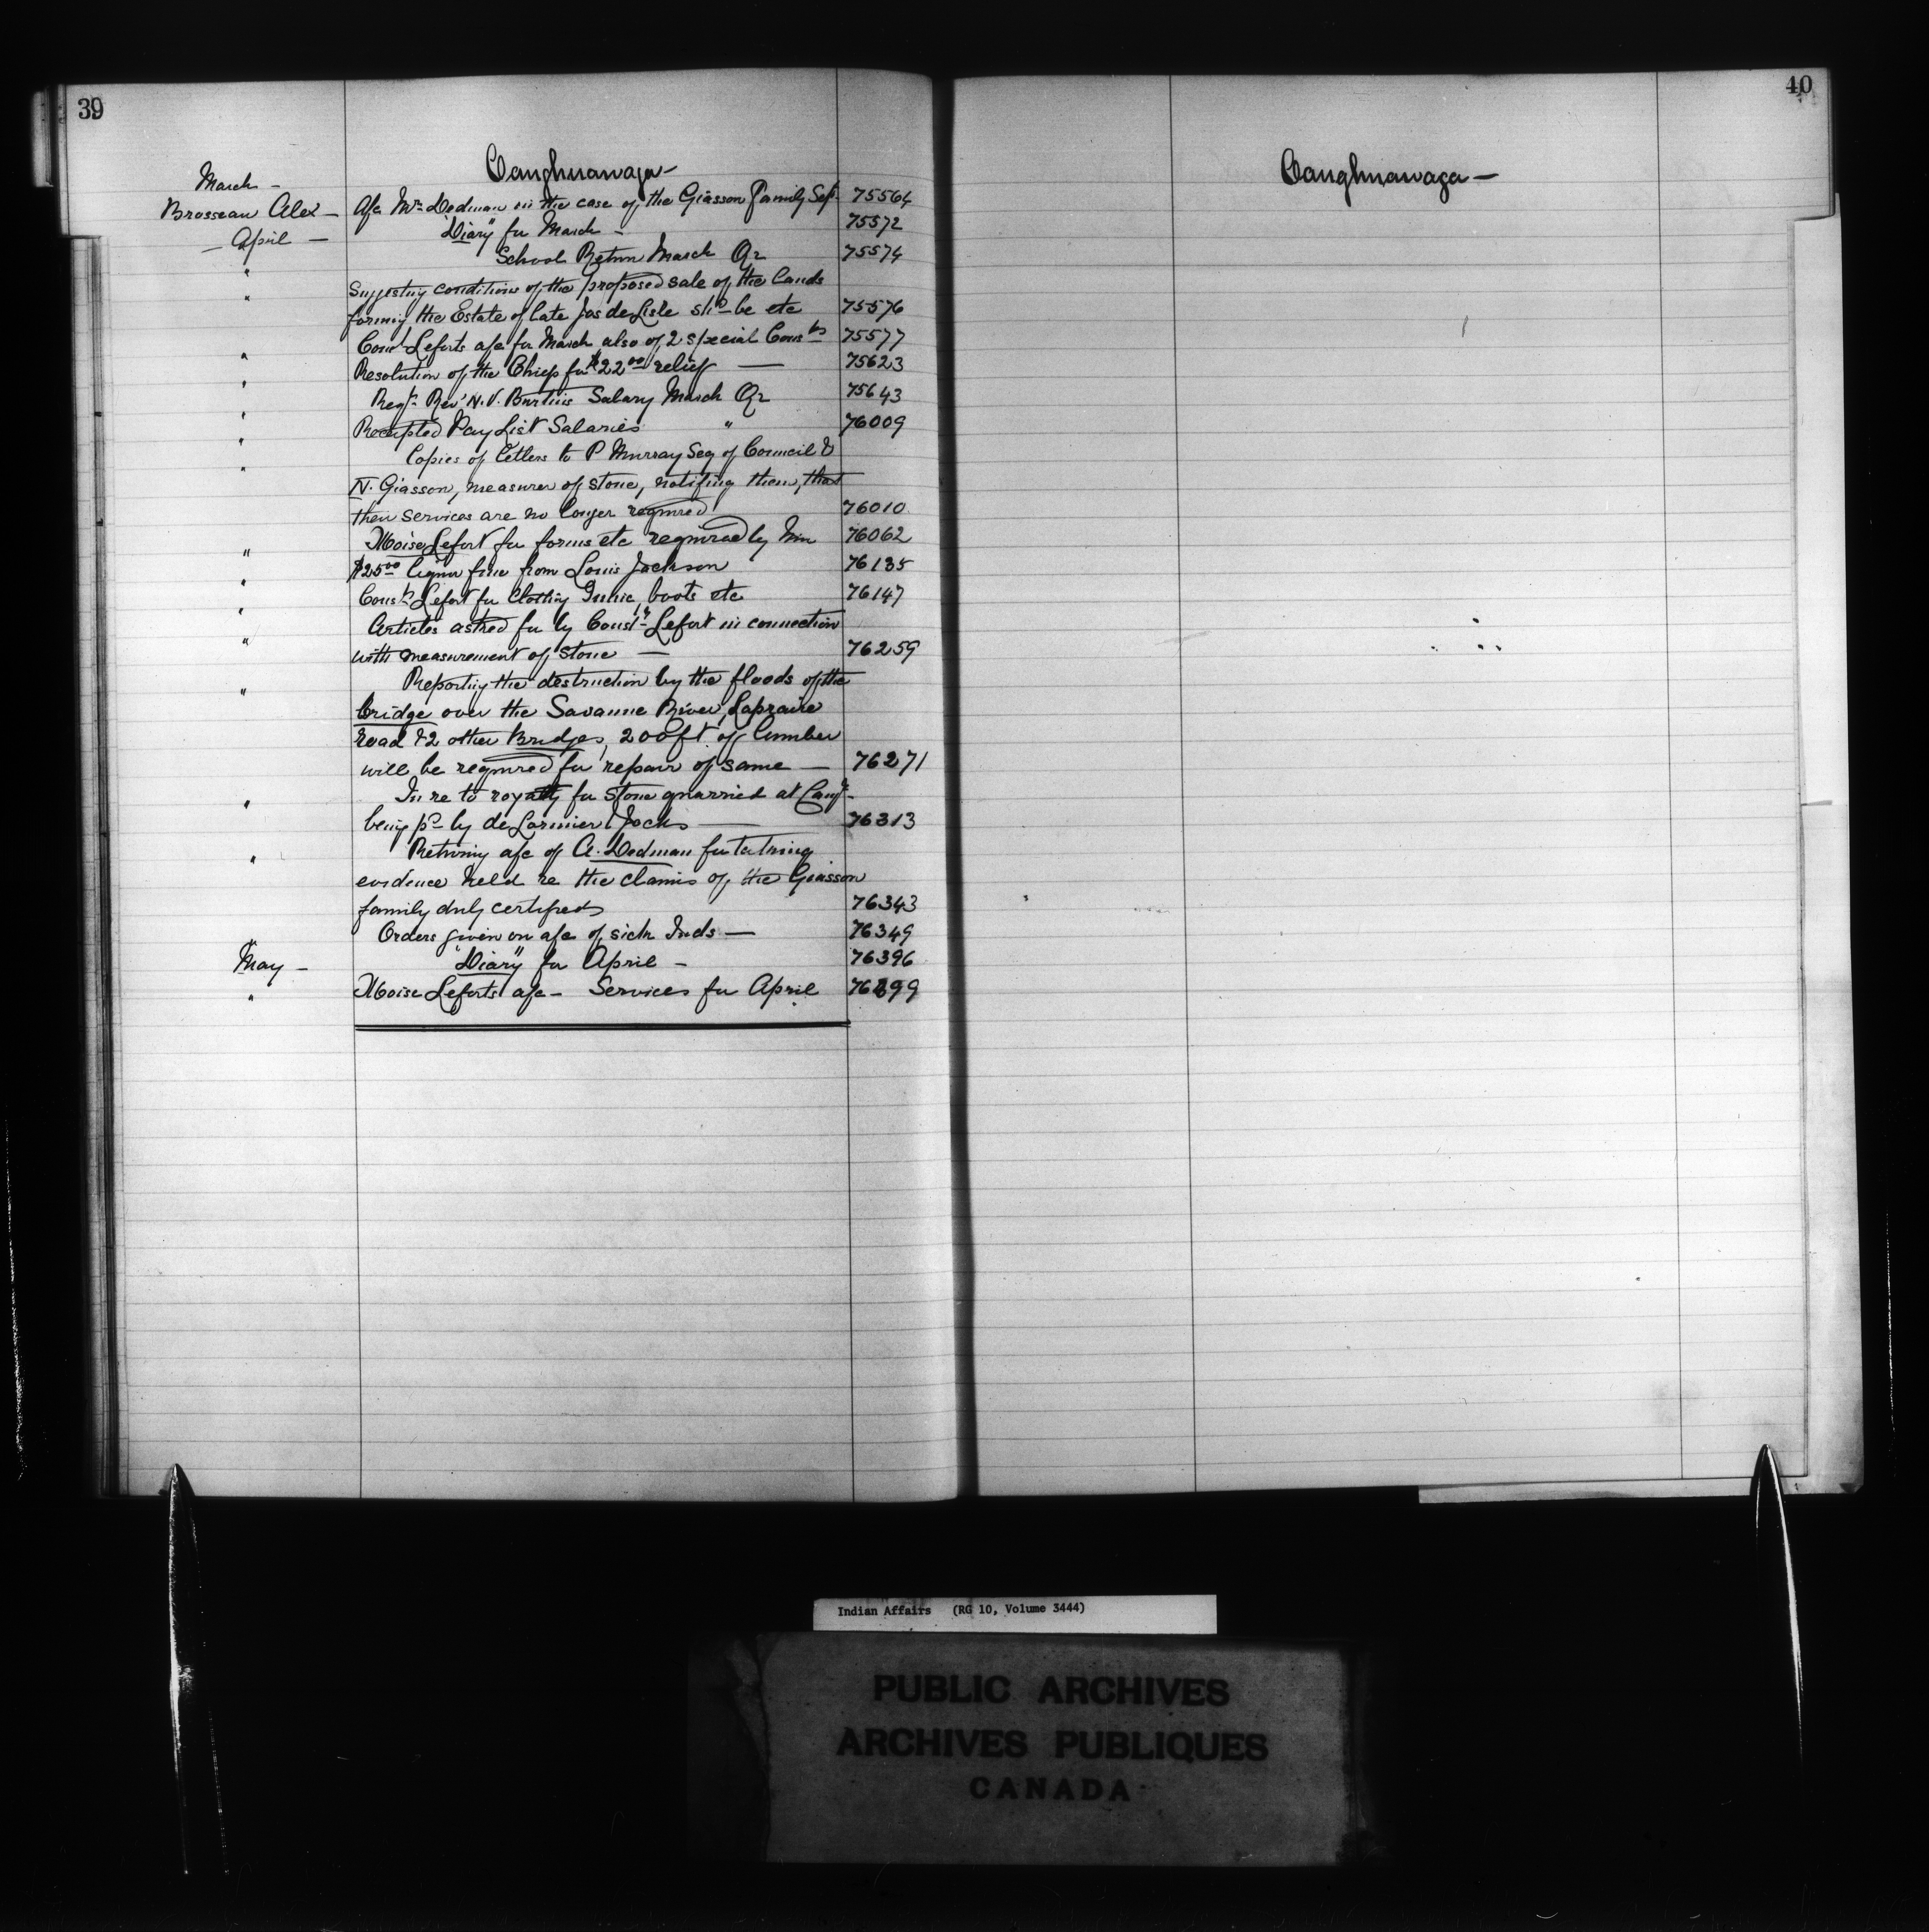 39
40
Caughnawaga —
Caughnawaga —
March —
Brosseau Alex — a/c Mr Dedman in the case of the Giasson Family 75564
— April — "Diary" for March — 75572
" School Return March Qr 75574
" Suggesting conditions of the proposed sale of the Lands
forming the Estate of late Jas deLisle shd be etc 75576
" Consl Leforts a/c for March also of 2 special Consbs 75577
" Resolution of the Chiefs for $22.00 relief — 75623
" Regt Revd N. V. Burtins Salary March Qr 75643
" Receipted Pay List Salaries " 76009
" Copies of letters to P Murray Secy of Council &
N. Giasson, measurer of stone, notifing them, that
their services are no longer required 76010
" Moise Lefort for forms etc required by him 76062
" $25.00 liquor fine from Louis Jackson 76135
" Const Lefort for Clothing Tunic, boots etc 76147
" Articles asked for by Const Lefort in connection
with measurement of stone — 76259
" Reporting the destruction by the floods of the
bridge over the Savanne River, Laprairie
Road & 2 other Bridges, 200 ft of lumber
will be required for repair of same — 76271
" In re to royalty for stone quarried at Caugh
being pd by deLormier & Jocks — 76313
" Returning a/c of A. Dedman for taking
evidence held re the claims of the Giasson
family duly certified 76343
" Orders given on a/c of sick Inds — 76349
May — "Diary" for April — 76396
" Moise Leforts a/c — Services for April 76399
Indian Affairs (RG 10, Volume 3444)
PUBLIC ARCHIVES
ARCHIVES PUBLIQUES
CANADA